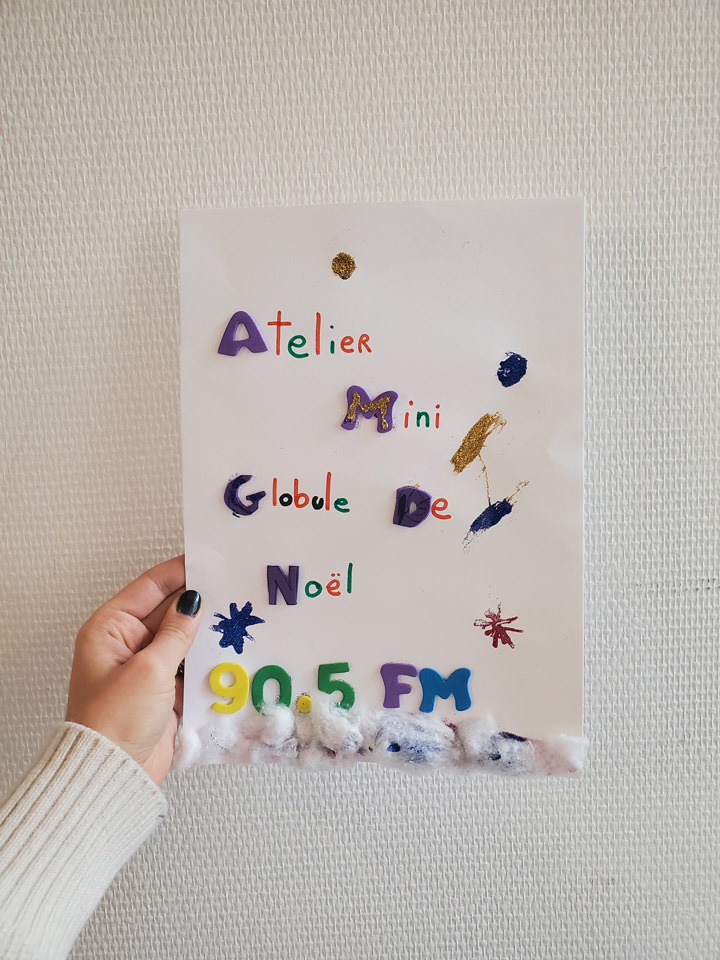 Atelier
Mini
Globule De
Noël
90.5 FM